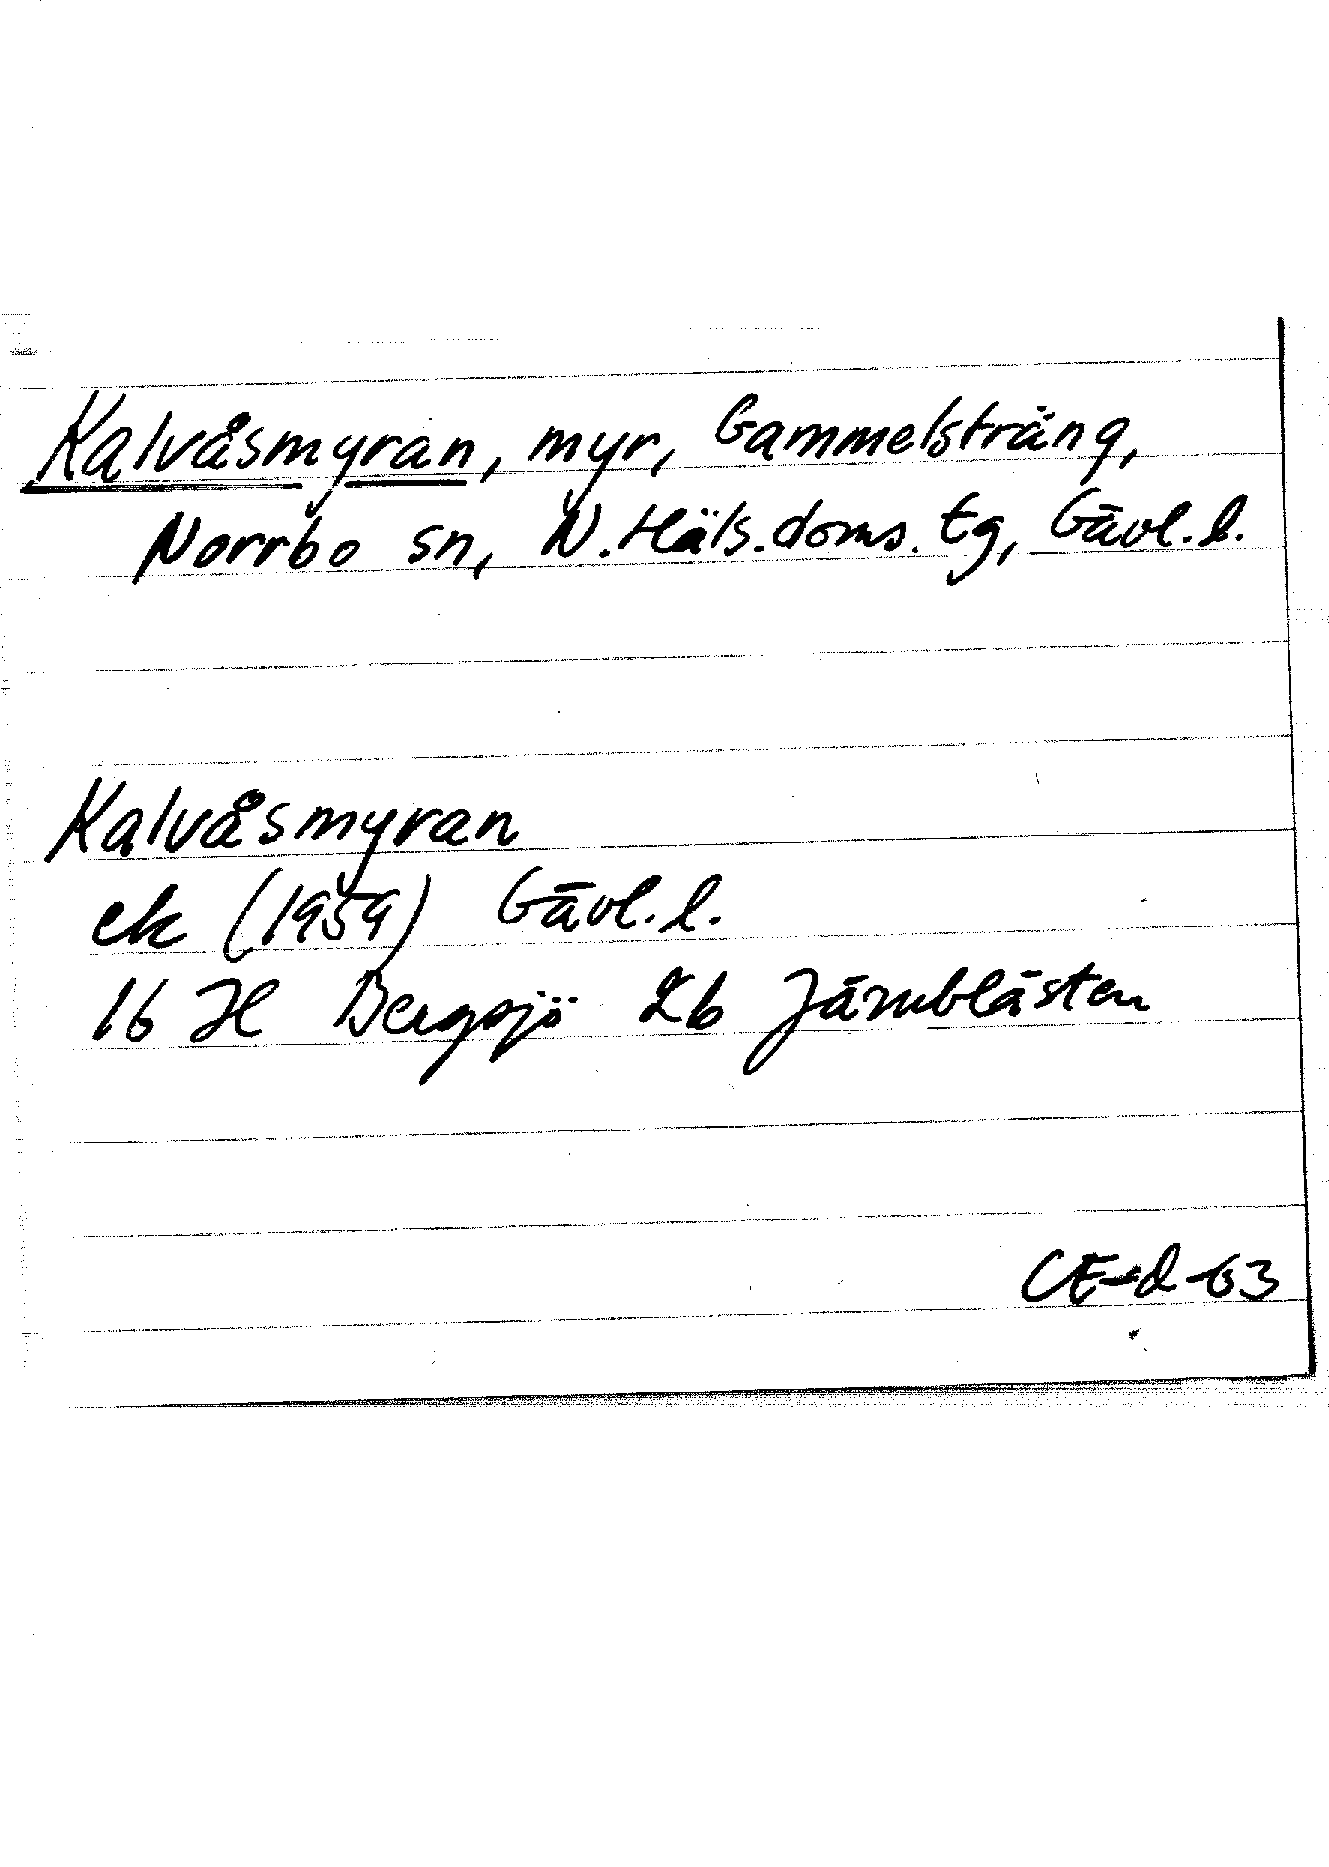 Kalvåsmyran, myr, Gammelsträng,
Norrbo sn, N. Häls. doms. tg, Gävl. l.
Kalvåsmyran
ek (1959) Gävl. l.
16 H Bergsjö Ib Järnblästen
CE-d-63